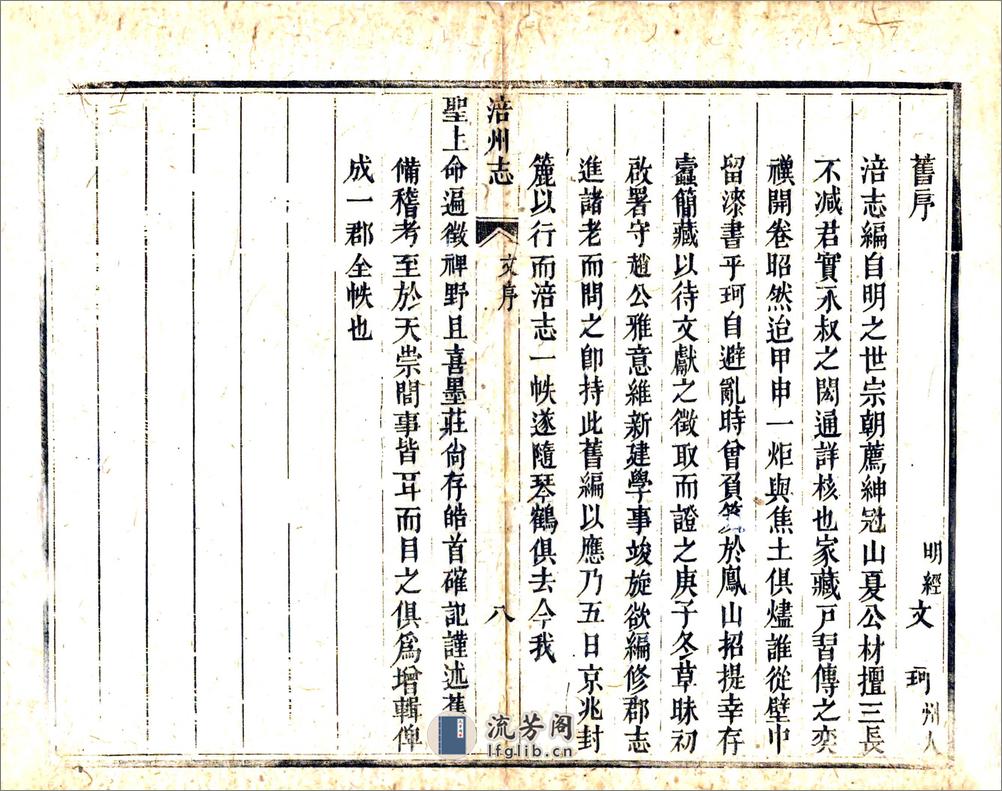 舊序
明經文珂州人
涪志編自明之世宗朝薦紳冠山夏公材擅三長
不减君實永叔之閎通詳核也家藏戸習傳之奕
禩開卷昭然迨甲申一炬與焦土俱燼誰從壁中
留漆書乎珂自避亂時曾負笈於鳳山招提幸存
蠹簡藏以待文獻之徵取而證之庚子冬草昧初
啟署守趙公雅意維新建學事竣旋欲編修郡志
進諸老而問之卽持此舊編以應乃五日京兆封
簏以行而涪志一帙遂隨琴鶴俱去今我
涪州志
文序
八
聖上命遍徵稗野且喜墨莊尙存皓首確記謹述舊
備稽考至於天崇間事皆耳而目之俱爲增輯俾
成一郡全帙也
流芳阁
lfglib.cn